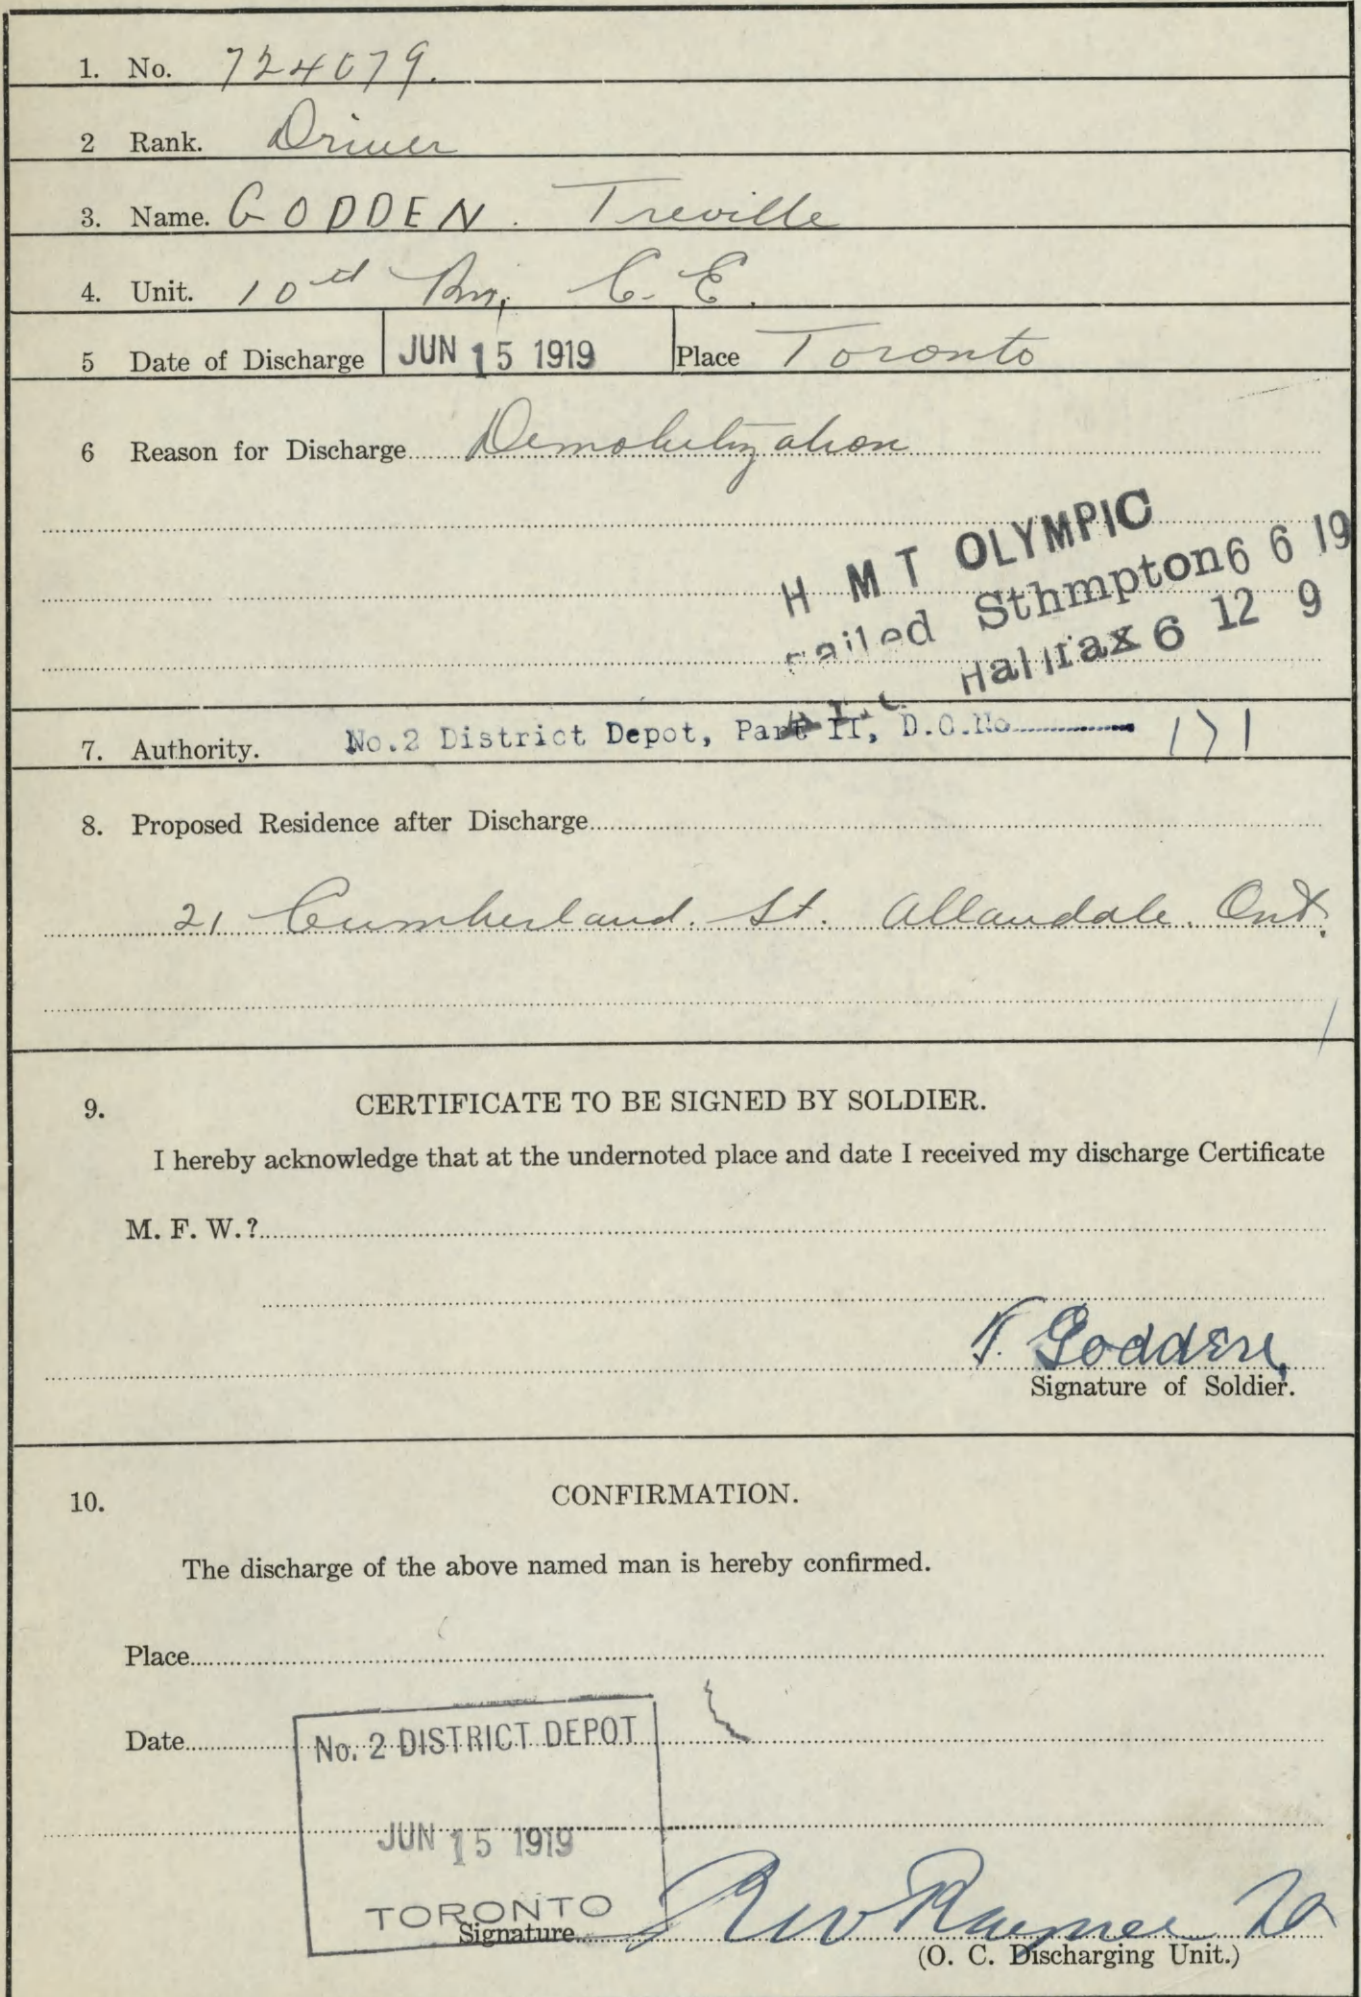 1. No. 724079.
2 Rank. Driver
3. Name. GODDEN. Treville
4. Unit. 10th Bn, C.E.
5 Date of Discharge JUN 15 1919 Place Toronto
6 Reason for Discharge Demobilization
H M T OLYMPIC
sailed Sthmpton 6 6 19
Halifax 6 12 9
7. Authority. No.2 District Depot, Part II, D.O.No 171
8. Proposed Residence after Discharge
21 Cumberland. St. Allandale. Ont.
9. CERTIFICATE TO BE SIGNED BY SOLDIER.
I hereby acknowledge that at the undernoted place and date I received my discharge Certificate
M. F. W.?
T. Godden,
Signature of Soldier.
10. CONFIRMATION.
The discharge of the above named man is hereby confirmed.
Place
Date No. 2 DISTRICT DEPOT
JUN 15 1919
TORONTO
Signature
(O. C. Discharging Unit.)